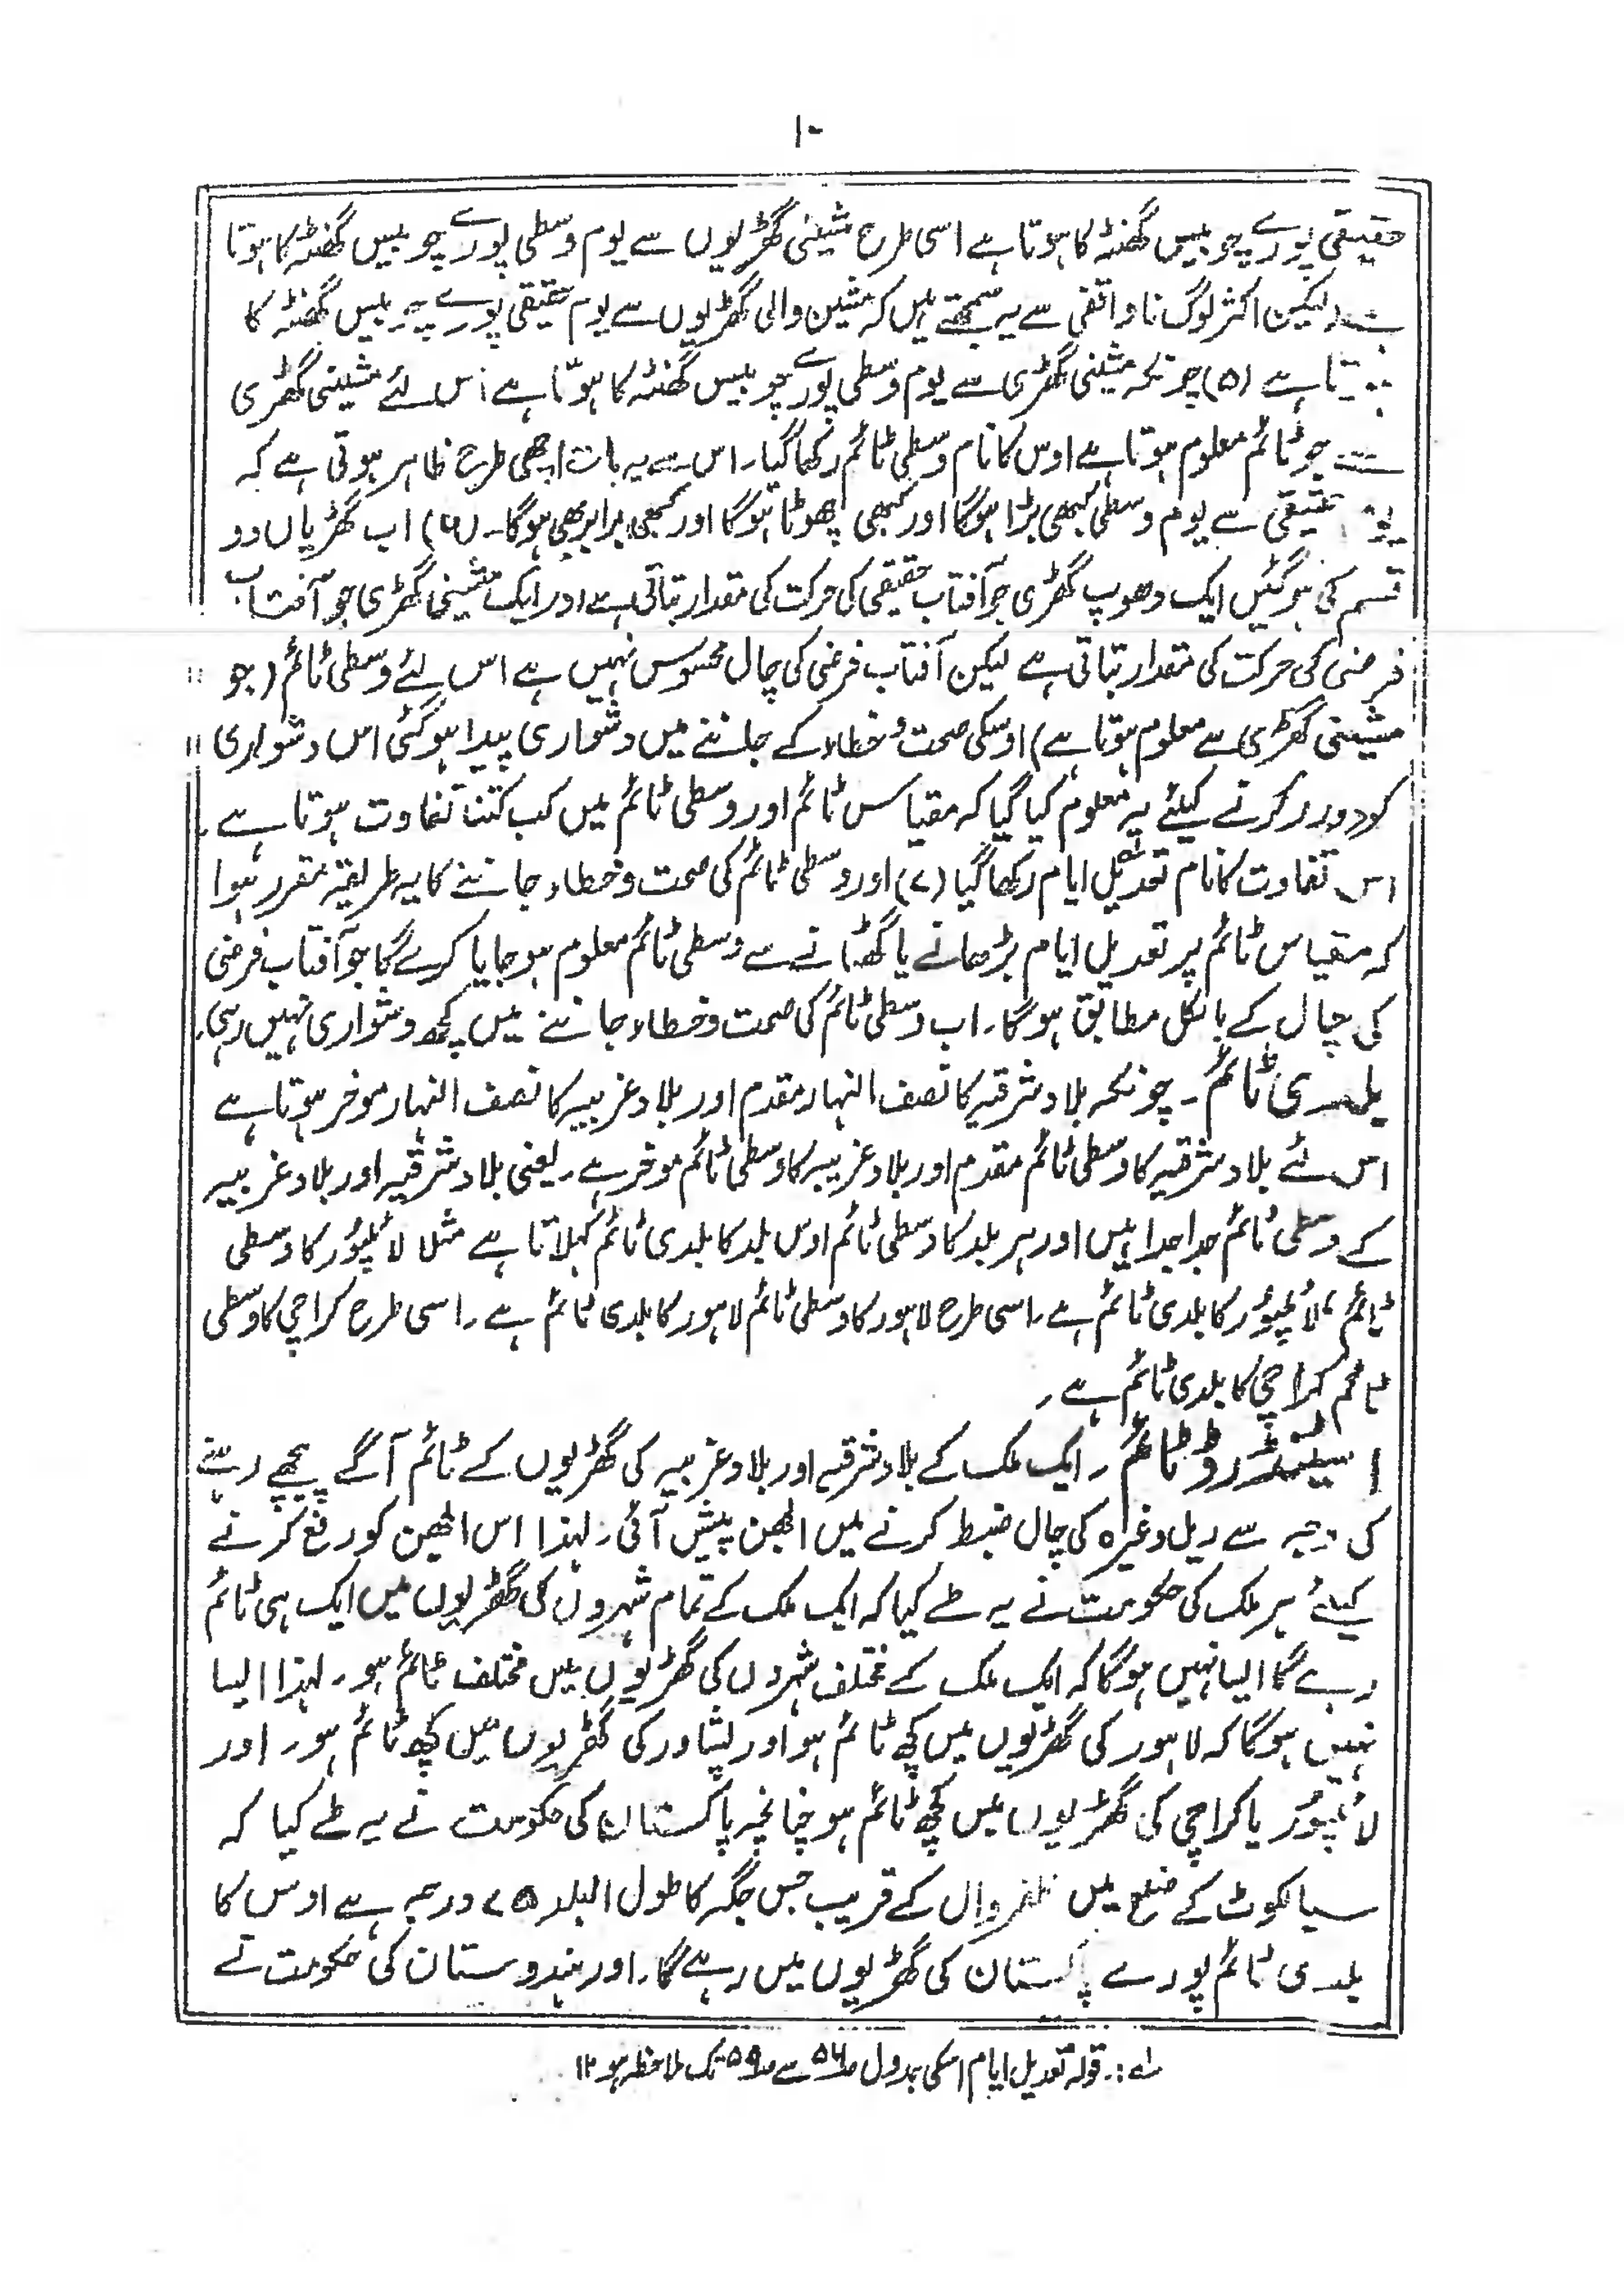 ۱۰
حقیقی پورے چوبیس گھنٹہ کا ہوتا ہے اسی طرح مشینی گھڑیوں سے یوم وسطی پورے چوبیس گھنٹہ کا ہوتا
ہے۔ لیکن اکثر لوگ ناواقفی سے یہ سمجھتے ہیں کہ مشین والی گھڑیوں سے یوم حقیقی پورے چوبیس گھنٹہ کا
ہوتا ہے (۵) چونکہ مشینی گھڑی سے یوم وسطی پورے چوبیس گھنٹہ کا ہوتا ہے اس لئے مشینی گھڑی
سے جو ٹائم معلوم ہوتا ہے اوس کا نام وسطی ٹائم رکھا گیا۔ اس سے یہ بات اچھی طرح ظاہر ہوتی ہے کہ
یوم حقیقی سے یوم وسطی کبھی بڑا ہوگا اور کبھی چھوٹا ہوگا اور کبھی برابر بھی ہوگا۔ (۶) اب گھڑیاں دو
قسم کی ہوگئیں ایک دھوپ گھڑی جو آفتاب حقیقی کی حرکت کی مقدار بتاتی ہے اور ایک مشینی گھڑی جو آفتاب
فرضی کی حرکت کی مقدار بتاتی ہے لیکن آفتاب فرضی کی چال محسوس نہیں ہے اس لئے وسطی ٹائم (جو
مشینی گھڑی سے معلوم ہوتا ہے) اوسکی صحت و خطاء کے جاننے میں دشواری پیدا ہوگئی اس دشواری
کو دور کرنے کیلئے یہ معلوم کیا گیا کہ مقیاس ٹائم اور وسطی ٹائم میں کب کتنا تفاوت ہوتا ہے۔
اس تفاوت کا نام تعدیل ایام رکھا گیا (۷) اور وسطی ٹائم کی صحت و خطاء جاننے کا یہ طریقہ مقرر ہوا
کہ مقیاس ٹائم پر تعدیل ایام بڑھانے یا گھٹانے سے وسطی ٹائم معلوم ہو جایا کرے گا جو آفتاب فرضی
کی چال کے بالکل مطابق ہوگا۔ اب وسطی ٹائم کی صحت و خطاء جاننے میں کچھ دشواری نہیں رہی۔
بلدی ٹائم۔ چونکہ بلاد شرقیہ کا نصف النہار مقدم اور بلاد غربیہ کا نصف النہار موخر ہوتا ہے
اس لئے بلاد شرقیہ کا وسطی ٹائم مقدم اور بلاد غربیہ کا وسطی ٹائم موخر ہے۔ یعنی بلاد شرقیہ اور بلاد غربیہ
کے وسطی ٹائم جدا جدا ہیں اور ہر بلد کا وسطی ٹائم اوس بلد کا بلدی ٹائم کہلاتا ہے مثلا لائلپور کا وسطی
ٹائم، لائلپور کا بلدی ٹائم ہے۔ اسی طرح لاہور کا وسطی ٹائم لاہور کا بلدی ٹائم ہے۔ اسی طرح کراچی کا وسطی
ٹائم کراچی کا بلدی ٹائم ہے۔
اسٹینڈرڈ ٹائم۔ ایک ملک کے بلاد شرقیہ اور بلاد غربیہ کی گھڑیوں کے ٹائم آگے پیچھے رہنے
کی وجہ سے ریل وغیرہ کی چال ضبط کرنے میں الجھن پیش آئی۔ لہذا اس الجھن کو رفع کرنے
کیلئے ہر ملک کی حکومت نے یہ طے کیا کہ ایک ملک کے تمام شہروں کی گھڑیوں میں ایک ہی ٹائم
رہے گا ایسا نہیں ہوگا کہ ایک ملک کے مختلف شہروں کی گھڑیوں میں مختلف ٹائم ہو۔ لہذا ایسا
نہیں ہوگا کہ لاہور کی گھڑیوں میں کچھ ٹائم ہو اور پشاور کی گھڑیوں میں کچھ ٹائم ہو۔ اور
لائلپور یا کراچی کی گھڑیوں میں کچھ ٹائم ہو چنانچہ پاکستان کی حکومت نے یہ طے کیا کہ
سیالکوٹ کے ضلع میں ظفروال کے قریب جس جگہ کا طول البلد ۷۵ درجہ ہے اوس کا
بلدی ٹائم پورے پاکستان کی گھڑیوں میں رہے گا۔ اور ہندوستان کی حکومت نے
لہ:۔ قولہ تعدیل ایام اسکی جدول ص۵۶ سے ص۵۹ تک ملاحظہ ہو ۱۲